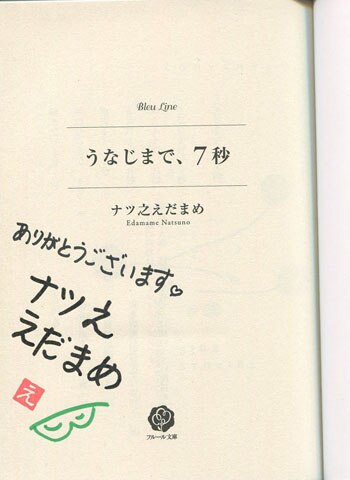 Bleu Line
うなじまで、7秒
ナツ之えだまめ
Edamame Natsuno
ありがとうございます♡
ナツ之
えだまめ
え
フルール文庫